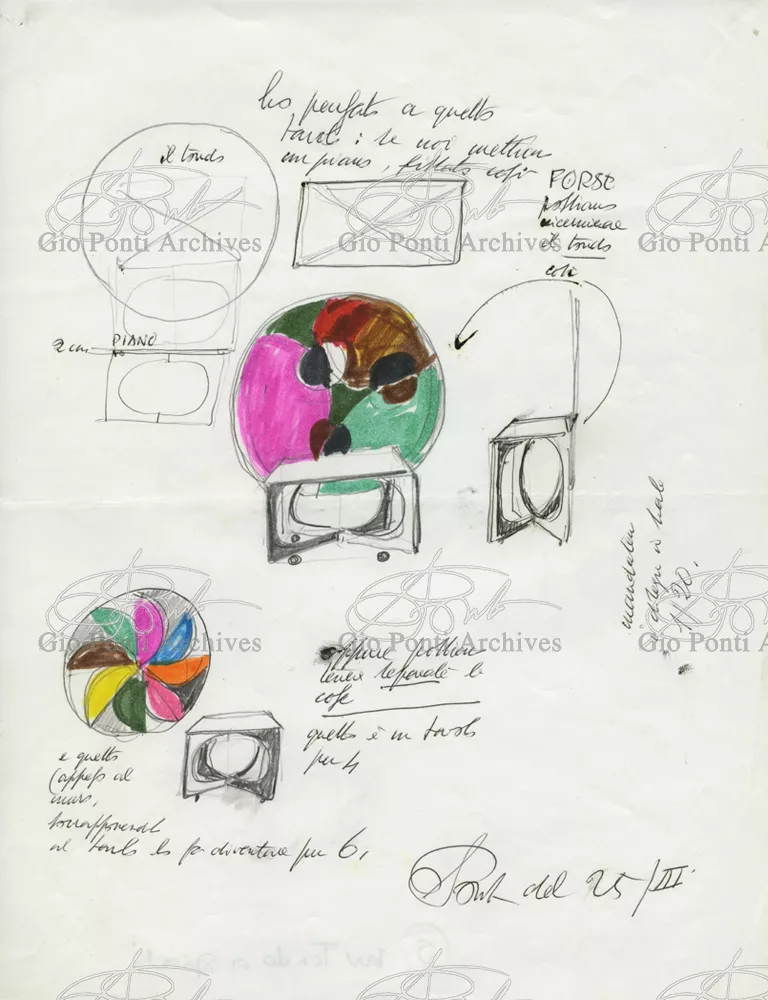 ho pensato a questo
tavolo: se noi mettiamo
un piano, fissato così
il tondo
FORSE
possiamo
il tondo
così
Gio Ponti Archives
Gio Ponti Archives
Gio Ponti Archives
2 cm PIANO
disegni in scala
1/20.
Gio Ponti Archives
Gio Ponti Archives
Gio Ponti Archives
oppure possiamo
tenere separate le
cose
questo è un tavolo
per 4
e questo
(appeso al
muro,
al tavolo lo fa diventare per 6,
Ponti del 25/III.